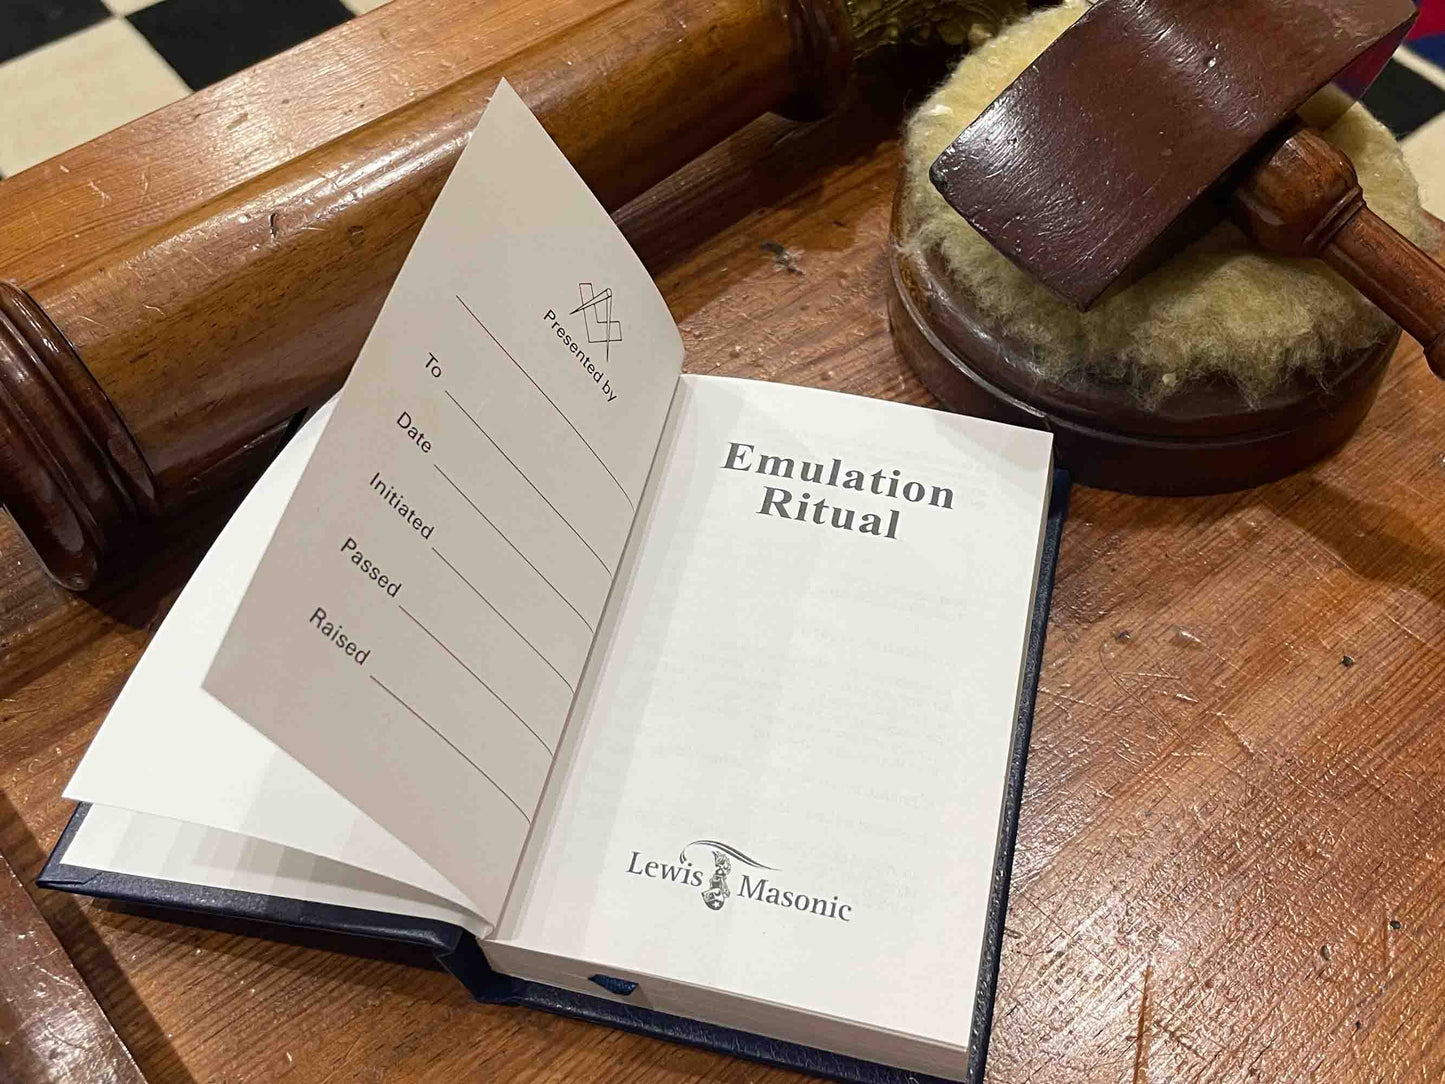 Presented by
To
Date
Initiated
Passed
Raised
Emulation
Ritual
Lewis Masonic